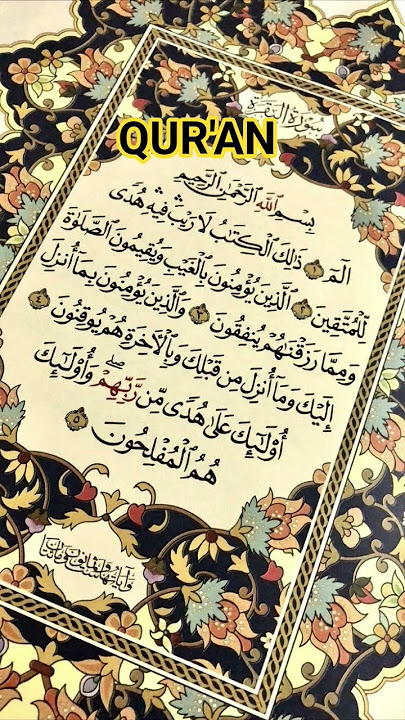 QUR'AN
سُورَةُ الْبَقَرَةِ
بِسْمِ اللَّهِ الرَّحْمَٰنِ الرَّحِيمِ
الٓمٓ ١ ذَٰلِكَ الْكِتَابُ لَا رَيْبَ فِيهِ هُدًى
لِّلْمُتَّقِينَ ٢ الَّذِينَ يُؤْمِنُونَ بِالْغَيْبِ وَيُقِيمُونَ الصَّلَوٰةَ
وَمِمَّا رَزَقْنَٰهُمْ يُنفِقُونَ ٣ وَالَّذِينَ يُؤْمِنُونَ بِمَا أُنزِلَ
إِلَيْكَ وَمَا أُنزِلَ مِن قَبْلِكَ وَبِالْآخِرَةِ هُمْ يُوقِنُونَ ٤
أُوْلَٰٓئِكَ عَلَىٰ هُدًى مِّن رَّبِّهِمْ ۖ وَأُوْلَٰٓئِكَ
هُمُ الْمُفْلِحُونَ ٥